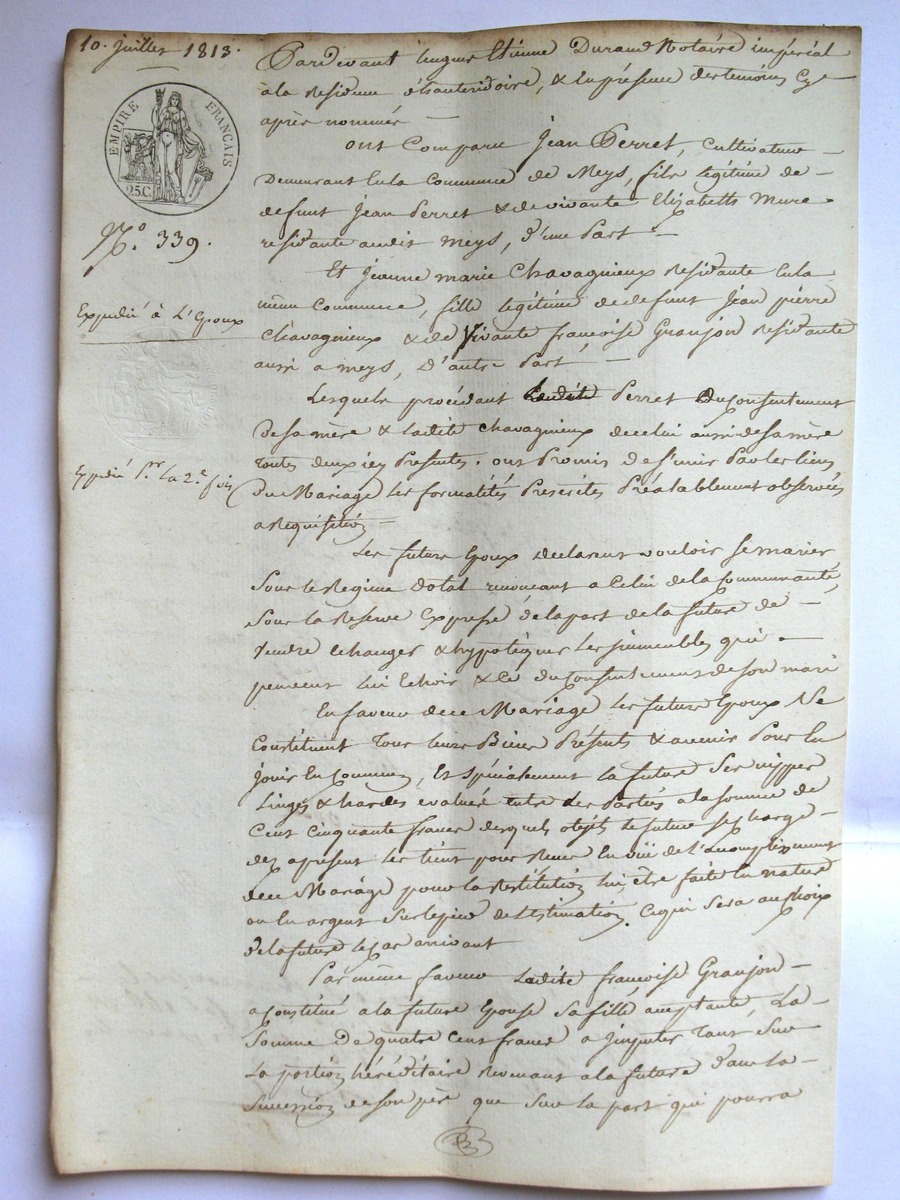 10. juillet 1813.
EMPIRE FRANÇAIS
25.C.
N.º 339.
Expedié à L'Epoux
Expedié p.r La 2.e fois
Pardevant Etienne Durand Notaire impérial
a la Residence d'hauterivoire, & en présence des temoins Cy
après nommés —
ont Comparu Jean Perret, Cultivateur —
Demeurant en la Commune de Meys, fils legitime de —
defunt Jean Perret & de vivante Elizabeth Mure
residante audit meys, d'une Part —
Et Jeanne marie Chavagnieux Residante en la
même Commune, fille legitime de defunt Jean pierre
Chavagnieux & de Vivante françoise Granjon Residante
aussi a meys, D'autre Part —
Lesquels procédant Perret du Consentement
De sa mère & Ladite Chavagnieux de celui aussi de sa mère
toutes deux icy Presentes. ont Promis de s'unir Par les liens
Du Mariage Les formalités Prescrites Préalablement observées
a Requisition =
Les futurs Epoux Declarent vouloir se marier
Sous le Regime Dotal renoncant a Celui de la Communauté,
Sous la Reserve Expresse de la part de la future de —
vendre Echanger & hypotequer Les immeubles qui —
pourront lui Echoir & Ce du Consentement de son mari
En faveur de ce Mariage Les futurs Epoux Se
Constituent Tous leurs Biens Présents & avenir Pour En
jouir En Commun, Et Spécialement la future Ses nippes
Linges & hardes evalués entre Les Parties a la somme de
Cent Cinquante francs desquels objets Le futur se charge —
dez apresent Les tient pour Recus En vüe de l'accomplissement
de ce Mariage pour la Restitution lui être faite En nature
ou En argent Sur le pied de L'Estimation, Ce qui Sera au choix
de la future le Cas arrivant
Par même faveur Ladite françoise Granjon —
a Constitué a la future Epouse Sa fille acceptante, La —
Somme De quatre Cent francs a Imputer Tant Sur
La portion héréditaire Revenant a la future dans La —
Succession de son père que Sur la part qui pourra